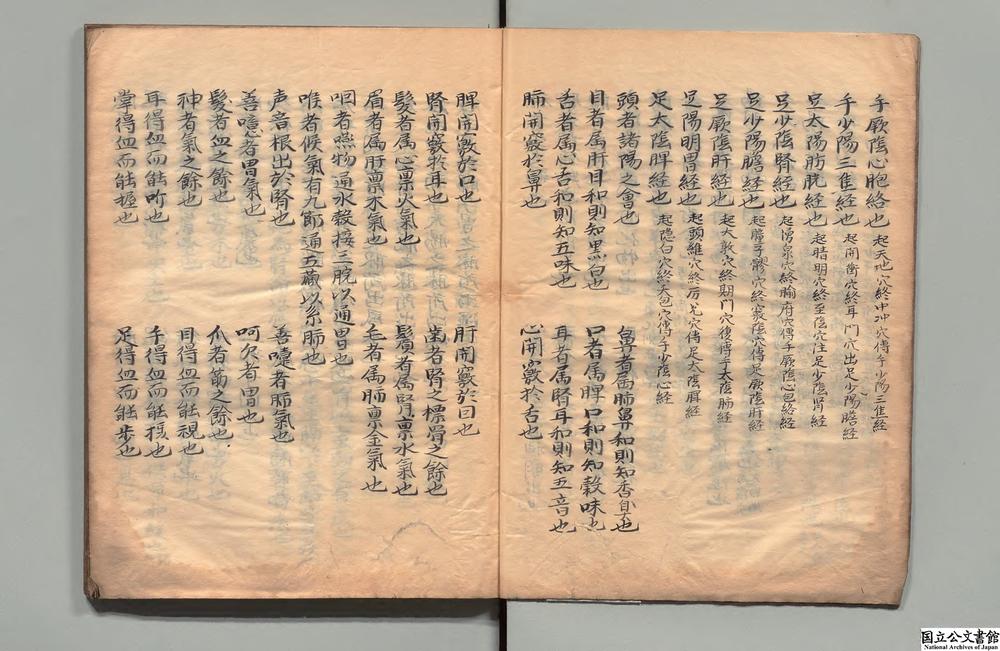 手厥陰心胞絡也 起天池穴終中冲穴傳手少陽三隹経
手少陽三隹経也 起関衝穴終耳門穴出足少陽膽経
足太陽膀胱経也 起睛明穴終至陰穴注足少陰腎経
足少陰腎経也 起湧泉穴終腧府穴傳手厥陰心包絡経
足少陽膽経也 起瞳子髎穴終竅陰穴傳足厥陰肝経
足厥陰肝経也 起大敦穴終期門穴復傳手太陰肺経
足陽明胃経也 起頭維穴終厉兌穴傳足太陰脾経
足太陰脾経也 起隠白穴終大包穴傳手少陰心経
頭者諸陽之會也 鼻者属肺鼻和則知香臭也
目者属肝目和則知黒白也 口者属脾口和則知穀味也
舌者属心舌和則知五味也 耳者属腎耳和則知五音也
肺開竅於鼻也 心開竅於舌也
脾開竅於口也 肝開竅於目也
腎開竅於耳也 歯者腎之標骨之餘也
髪者属心禀火氣也 鬚者属腎禀水氣也
眉者属肝禀木氣也 毛者属肺禀金氣也
咽者嚥物通水穀接三脘以通胃也
喉者候氣有九節通五蔵以系肺也
声音根出於腎也 善嚏者肺氣也
善噫者胃氣也 呵欠者胃也
髪者血之餘也 爪者筋之餘也
神者氣之餘也 目得血而能視也
耳得血而能听也 手得血而能摂也
掌得血而能握也 足得血而能歩也
国立公文書館
National Archives of Japan